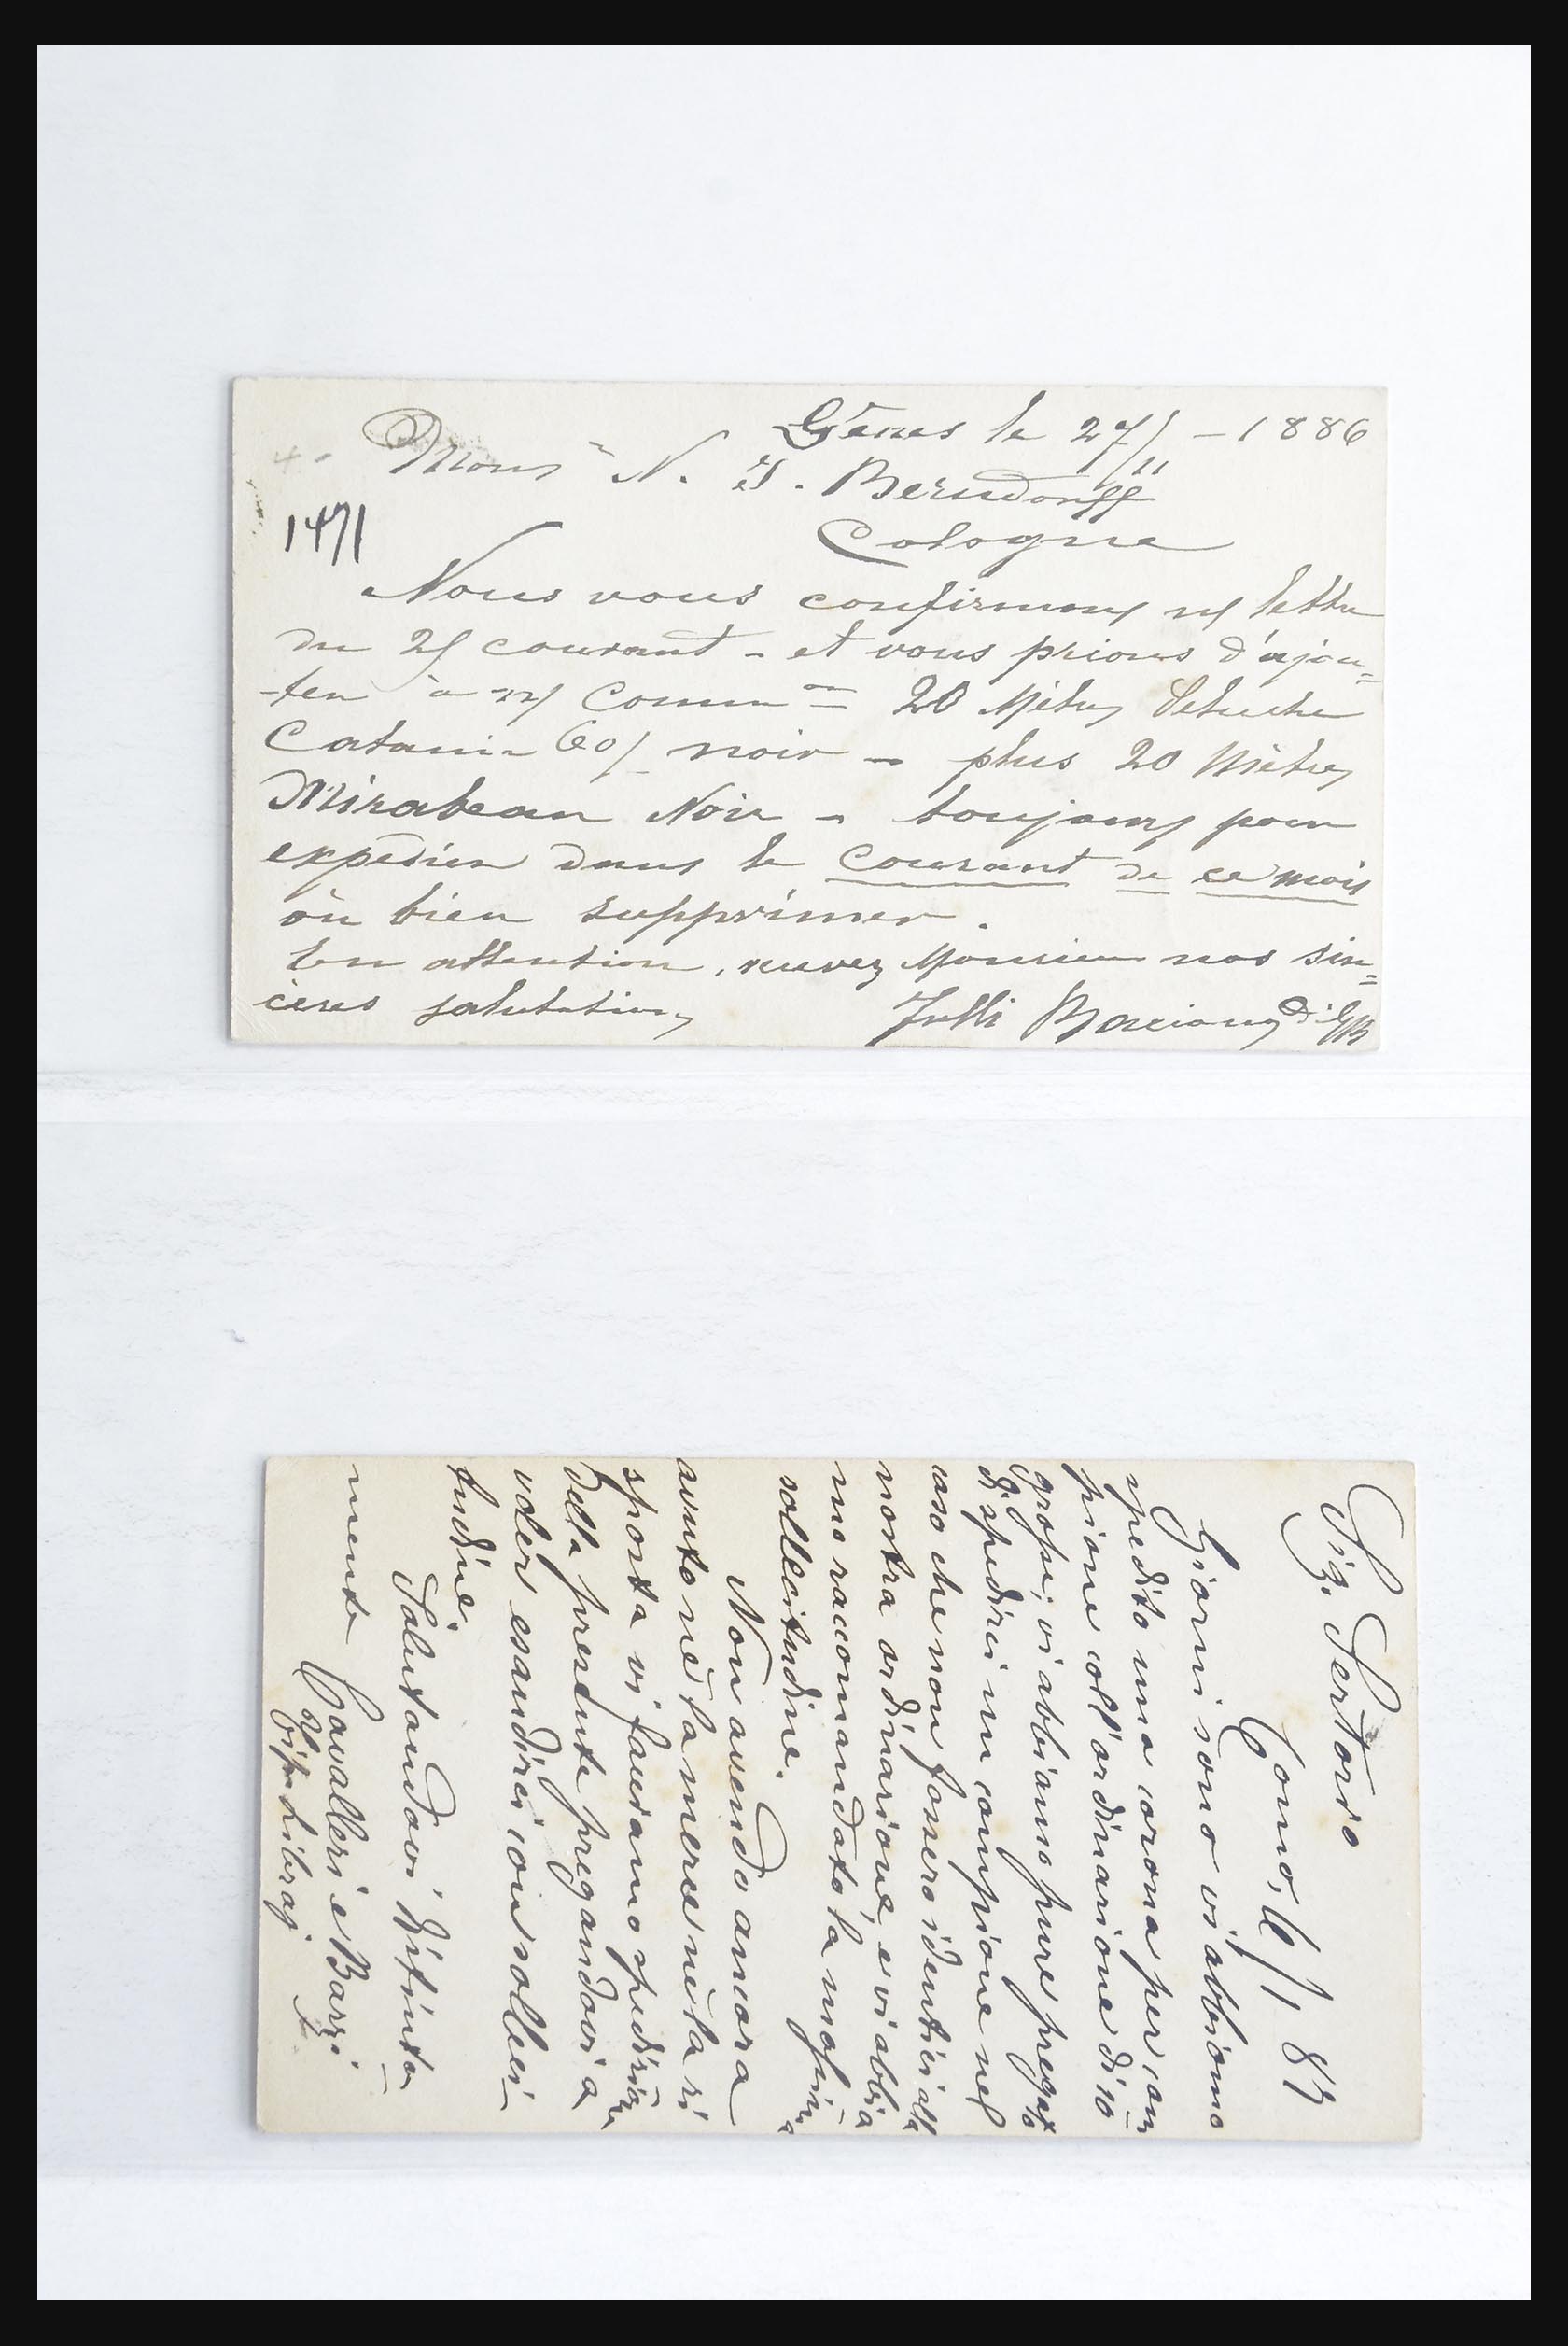 Gênes le 27/11 - 1886
Mons N. J. Berndorff
Cologne
1471
Nous vous confirmons n/ lettre
du 25 courant - et vous prions d'ajou=
-ter à n/ Comm^on 20 Mètres Peluche
Catania 60/ noir - plus 20 Mètres
Mirabeau Noir - toujours pour
expedier dans le courant de ce mois
ou bien supprimer.
En attention, recevez Monsieur nos sin=
cères salutations
Fratelli
Sig. Sertorio
Como, 6/1 87
Giorni sono vi abbiamo
spedito una corona per cam
pione coll'ordinazione di 10
grosse; vi abbiamo pure pregato
di spedirci un campione nel
caso che non fossero identici alla
nostra ordinazione, e vi abbia
mo raccomandato la massima
sollecitudine.
Non avendo ancora
avuto nè la merce nè la ri
sposta vi facciamo spedizione
della presente pregandovi a
voler esaudirci con solleci-
tudine.
Salutandovi distinta-
mente
Cavalleri e Bazzi
Librai